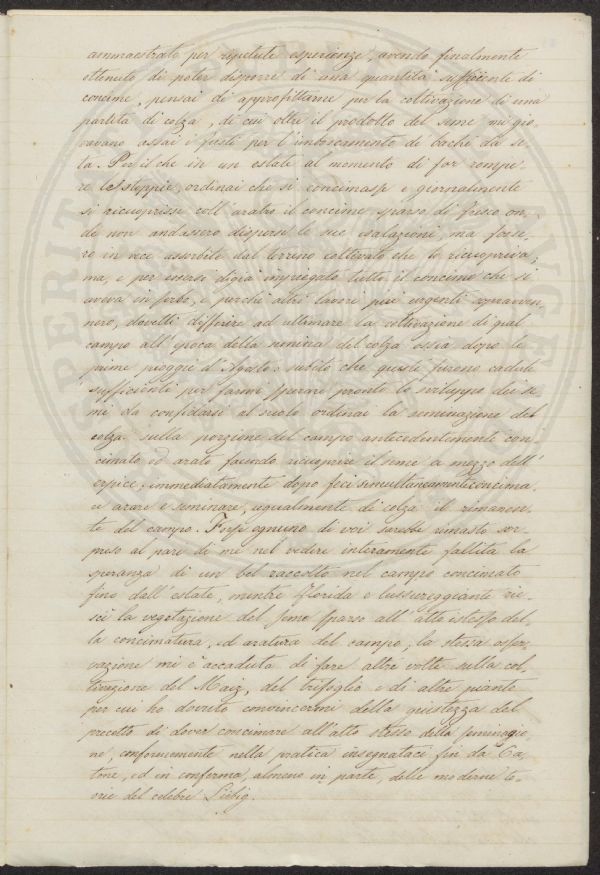 ammaestrato per ripetute esperienze, avendo finalmente
ottenuto di poter disporre di una quantità sufficiente di
concime, pensai di approfittarne per la coltivazione di una
partita di colza, di cui oltre il prodotto del seme mi gio-
vavano assai i fusti per l'imboscamento di bachi da se-
ta. Per il che in un estate al momento di far rompe-
re le stoppie, ordinai che si concimasse e giornalmente
si ricuoprisse coll'aratro il concime sparso di fresco on-
de non andassero disperse le sue esalazioni, ma fosse-
ro in vece assorbite dal terreno coltivato che lo ricuopriva;
ma, e per essersi digià impiegato tutto il concime che si
aveva in serbo, e perchè altri lavori più urgenti sopravven-
nero, dovetti differire ad ultimare la coltivazione di quel
campo all'epoca della semina del colza ossia dopo le
prime pioggie d'Agosto: subito che queste furono cadute
sufficienti per farmi sperare pronto lo sviluppo dei se-
mi da confidarsi al suolo ordinai la seminazione del
colza sulla porzione del campo antecedentemente con-
cimato ed arato facendo ricuoprire il seme a mezzo dell'
erpice; immediatamente dopo feci simultaneamente concima-
re arare e seminare, ugualmente di colza il rimanen-
te del campo. Forse ognuno di voi sarebbe rimasto sor-
preso al pari di me nel vedere interamente fallita la
speranza di un bel raccolto nel campo concimato
fino dall'estate, mentre florida e lussureggiante rie-
scì la vegetazione del seme sparso all'atto istesso del-
la concimatura, ed aratura del campo; la stessa osser-
vazione mi è accaduta di fare altre volte nella col-
tivazione del Maiz, del trifoglio e di altre piante
per cui ho dovuto convincermi della giustezza del
precetto di dover concimare all'atto stesso della seminagio-
ne, conformemente nella pratica insegnataci fin da Ca-
tone, ed in conferma, almeno in parte, delle moderne te-
orie del celebre Liebig.